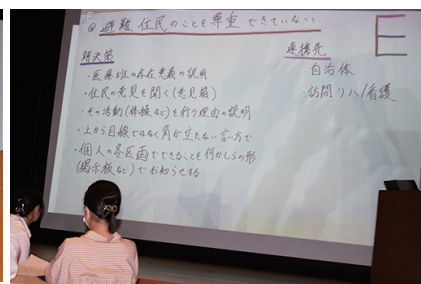 ④ 避難住民のことを尊重できていない
E
解決策
・医療班の存在意義の説明
・住民の意見を聞く(意見箱)
・その活動(体操など)を行う理由の説明
・上から目線ではなく角が立たない言い方で
・個人の各区画でできることを何かしらの形
(掲示板など)でお知らせする
連携先
・自治体
・訪問リハ/看護